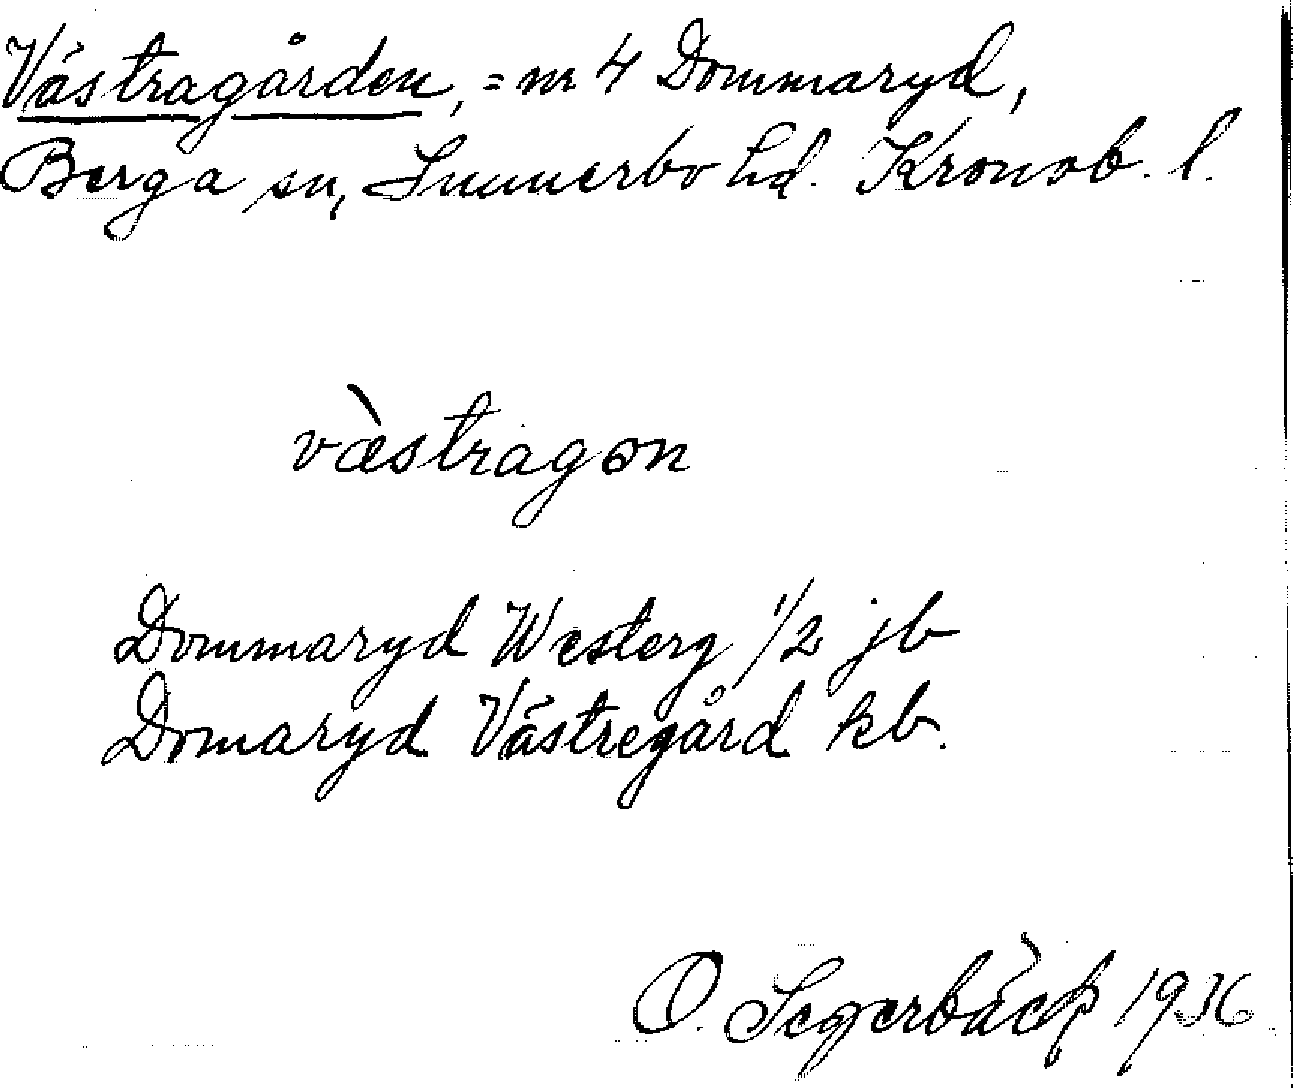 Västragården, = nr 4 Dommaryd,
Berga sn, Sunnerbo hd. Kronob. l.
væ̀stragɔn
Dommaryd Westerg 1/2 jb
Domaryd Västregård kb.
O. Segerbäck 1936